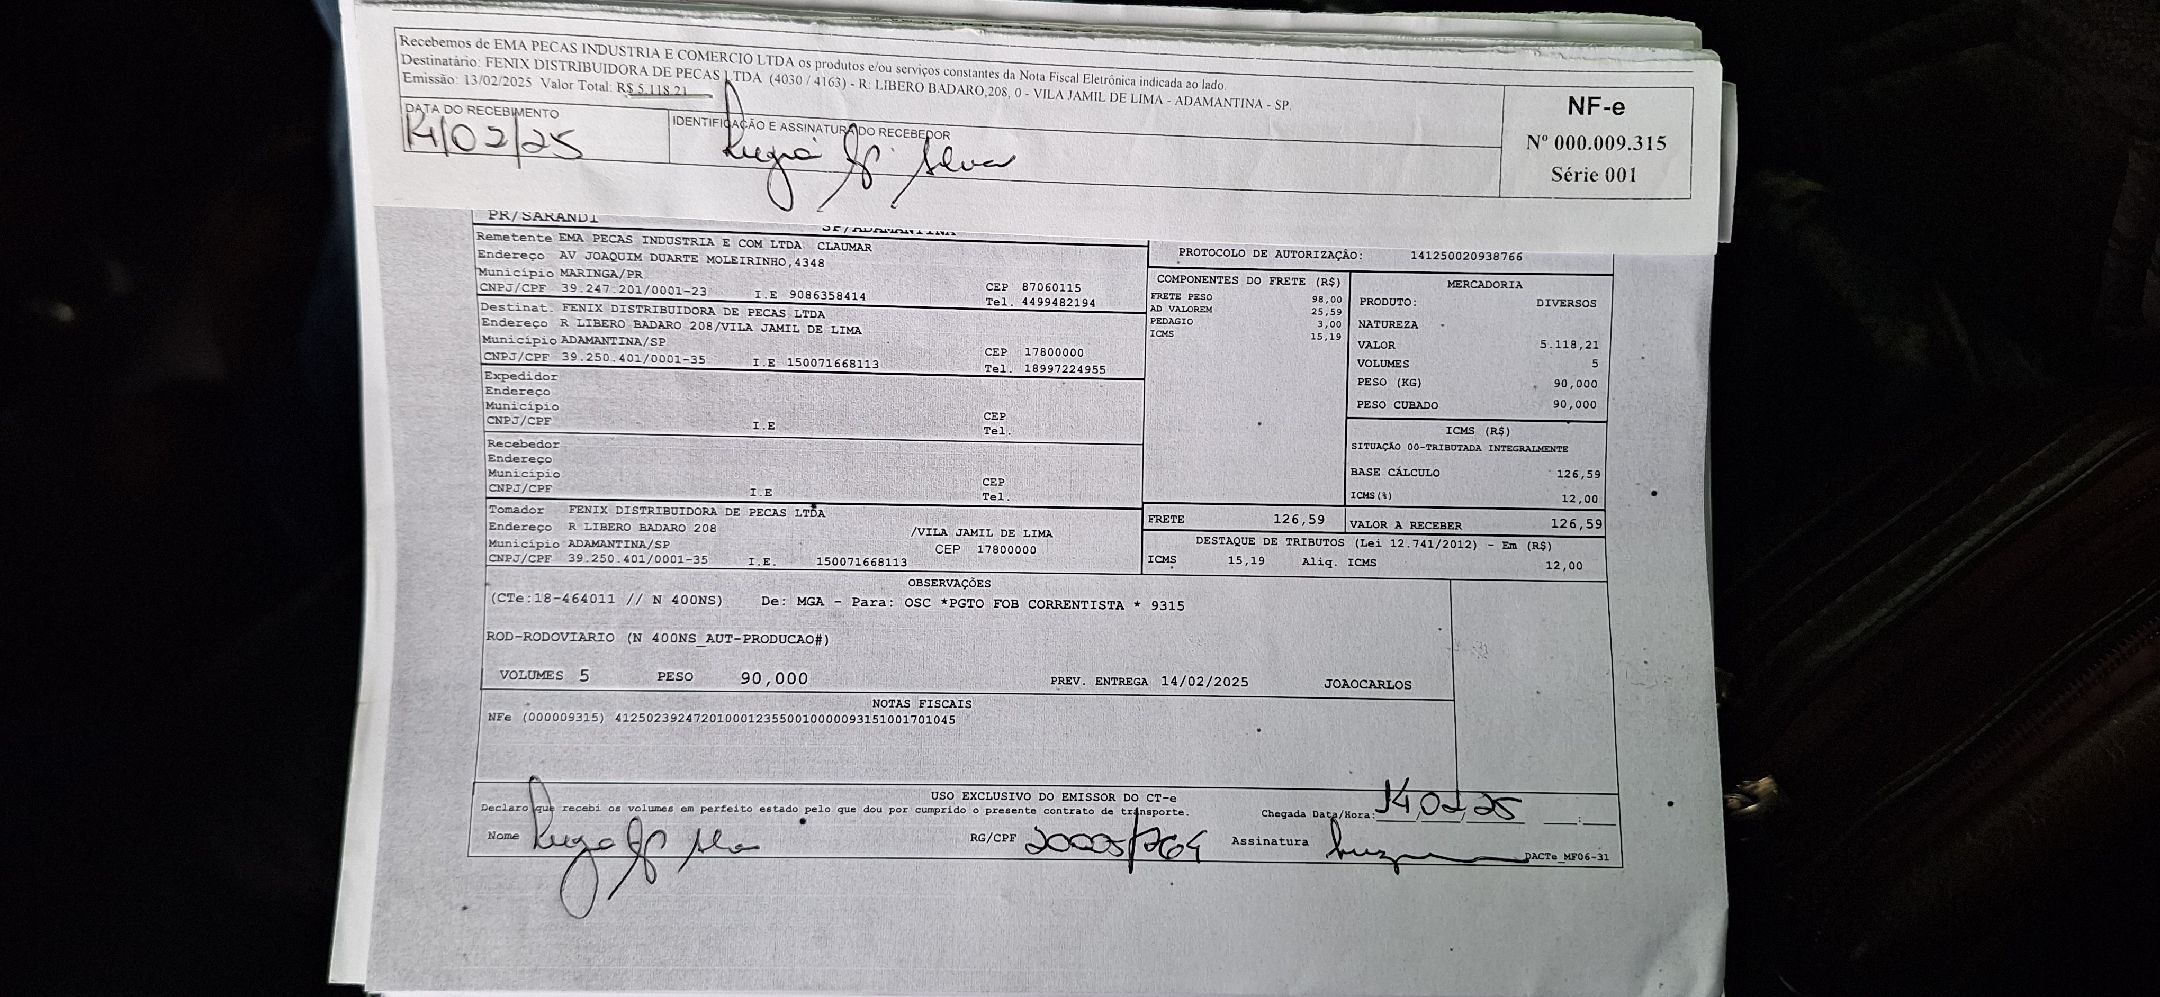 Recebemos de EMA PECAS INDUSTRIA E COMERCIO LTDA os produtos e/ou serviços constantes da Nota Fiscal Eletrônica indicada ao lado.
Destinatário: FENIX DISTRIBUIDORA DE PECAS LTDA (4030 / 4163) - R: LIBERO BADARO,208, 0 - VILA JAMIL DE LIMA - ADAMANTINA - SP.
Emissão: 13/02/2025 Valor Total: R$ 5.118,21
DATA DO RECEBIMENTO
14/02/25
IDENTIFICAÇÃO E ASSINATURA DO RECEBEDOR
Silva
NF-e
Nº 000.009.315
Série 001
PR/SARANDI
SP/ADAMANTINA
Remetente EMA PECAS INDUSTRIA E COM LTDA CLAUMAR
Endereço AV JOAQUIM DUARTE MOLEIRINHO,4348
Município MARINGA/PR
CEP 87060115
CNPJ/CPF 39.247.201/0001-23 I.E 9086358414 Tel. 4499482194
Destinat. FENIX DISTRIBUIDORA DE PECAS LTDA
Endereço R LIBERO BADARO 208/VILA JAMIL DE LIMA
Município ADAMANTINA/SP
CEP 17800000
CNPJ/CPF 39.250.401/0001-35 I.E 150071668113 Tel. 18997224955
Expedidor
Endereço
Município
CEP
CNPJ/CPF I.E Tel.
Recebedor
Endereço
Município
CEP
CNPJ/CPF I.E Tel.
Tomador FENIX DISTRIBUIDORA DE PECAS LTDA
Endereço R LIBERO BADARO 208 /VILA JAMIL DE LIMA
Município ADAMANTINA/SP CEP 17800000
CNPJ/CPF 39.250.401/0001-35 I.E. 150071668113
PROTOCOLO DE AUTORIZAÇÃO: 141250020938766
COMPONENTES DO FRETE (R$)
FRETE PESO 98,00
AD VALOREM 25,59
PEDAGIO 3,00
ICMS 15,19
MERCADORIA
PRODUTO: DIVERSOS
NATUREZA
VALOR 5.118,21
VOLUMES 5
PESO (KG) 90,000
PESO CUBADO 90,000
ICMS (R$)
SITUAÇÃO 00-TRIBUTADA INTEGRALMENTE
BASE CÁLCULO 126,59
ICMS(%) 12,00
FRETE 126,59 VALOR A RECEBER 126,59
DESTAQUE DE TRIBUTOS (Lei 12.741/2012) - Em (R$)
ICMS 15,19 Aliq. ICMS 12,00
OBSERVAÇÕES
(CTe:18-464011 // N 400NS) De: MGA - Para: OSC *PGTO FOB CORRENTISTA * 9315
ROD-RODOVIARIO (N 400NS_AUT-PRODUCAO#)
VOLUMES 5 PESO 90,000 PREV. ENTREGA 14/02/2025 JOAOCARLOS
NOTAS FISCAIS
NFe (000009315) 41250239247201000123550010000093151001701045
USO EXCLUSIVO DO EMISSOR DO CT-e
Declaro que recebi os volumes em perfeito estado pelo que dou por cumprido o presente contrato de transporte.
Chegada Data/Hora: 14/02/25 __:__
Nome
RG/CPF
Assinatura
DACTe_MF06-31